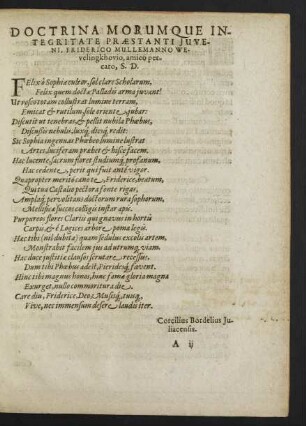 DOCTRINA MORUMQUE IN-
TEGRITATE PRÆSTANTI JUVE-
NI, FRIDERICO MULLEMANNO WE-
velingkhovio, amico per-
caro, S. D.
Felix ô Sophiæ cultor, sol clare Scholarum,
Felix quem doctæ Palladis arma juvant!
Ut roseos toram collustrat lumine terram,
Emicat & rutilum sole oriente jubar:
Discutit ut tenebras, & pellit nubila Phœbus,
Discussis nebulis, luxq́; diesq́; redit:
Sic Sophia ingenuas Phœbeo lumine lustrat
Artes, lustratam præbet & hisce facem.
Hac lucente, sacrum floret studiumq́; profanum,
Hac cedente, perit qui fuit ante vigor.
Quapropter meritò cano te, Friderice, beatum,
Qui tua Castalio pectora fonte rigas,
Amplaq́; pervolitans doctorum rura sophorum,
Mellifica succos colligis instar apis.
Purpureos flores Clarii quî gnavus in hortû
Carpis, & è Logices arbore poma legis.
Hac tibi (nil dubita) quàm sedulus excolis artem,
Monstrabit facilem jus ad utrumq́; viam.
Hac duce justitiæ clausos scrutare recessus,
Dum tibi Phœbus adest, Pieridesq́; favent.
Hinc tibi magnus honos, hinc famæ gloria magna
Exurget, nullo commoritura die.
Care diu, Friderice, Deo, Musisq́;, tuisq́;
Vive, nec immensum desere laudis iter.
Cornelius Bordelius Ju-
liacensis.
A ij